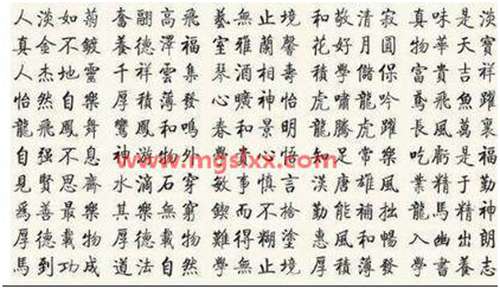 人淡如菊 奮翮高飛 藝無止境 和敬清寂 真味是淡
真金不鍍 養德澤福 室雅蘭馨 花好月圓 物華天寶
人杰地靈 千祥雲集 琴酒相壽 積學儲保 富貴吉祥
怡然自樂 厚積薄發 心曠神怡 虎嘯龍吟 鳶飛魚躍
龍飛鳳舞 鸞鳳和鳴 春和景明 龍騰虎躍 長風萬裏
自强不息 神游物外 賞心 知足常樂 吃虧是福
www.mgslxx.com
見賢思齋 水滴石穿 敏事慎言 漢唐雄風 業精于勤
爲善最樂 其樂無窮 鍥而不捨 勤能補拙 龍馬精神
厚德載物 厚德載物 難得糊塗 惠風和暢 入幽出朗
馬到功成 道法自然 學無止境 厚積薄發 學書養志